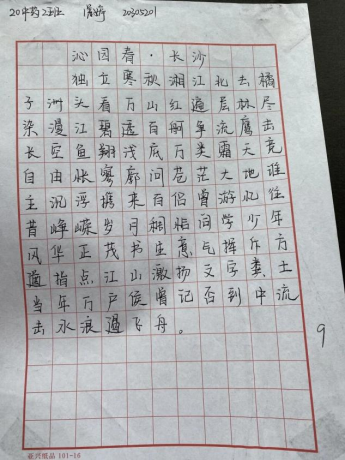 20中药2班 20305201
沁园春·长沙
独立寒秋湘江北去橘
子洲头看万山红遍层林尽
染漫江碧透百舸争流鹰击
长空鱼翔浅底万类霜天竞
自由怅寥廓问苍茫大地谁
主沉浮携来百侣曾游忆往
昔峥嵘岁月稠恰同学少年
风华正茂书生意气挥斥方
遒指点江山激扬文字粪土
当年万户侯曾记否到中流
击水浪遏飞舟。
9
101-16